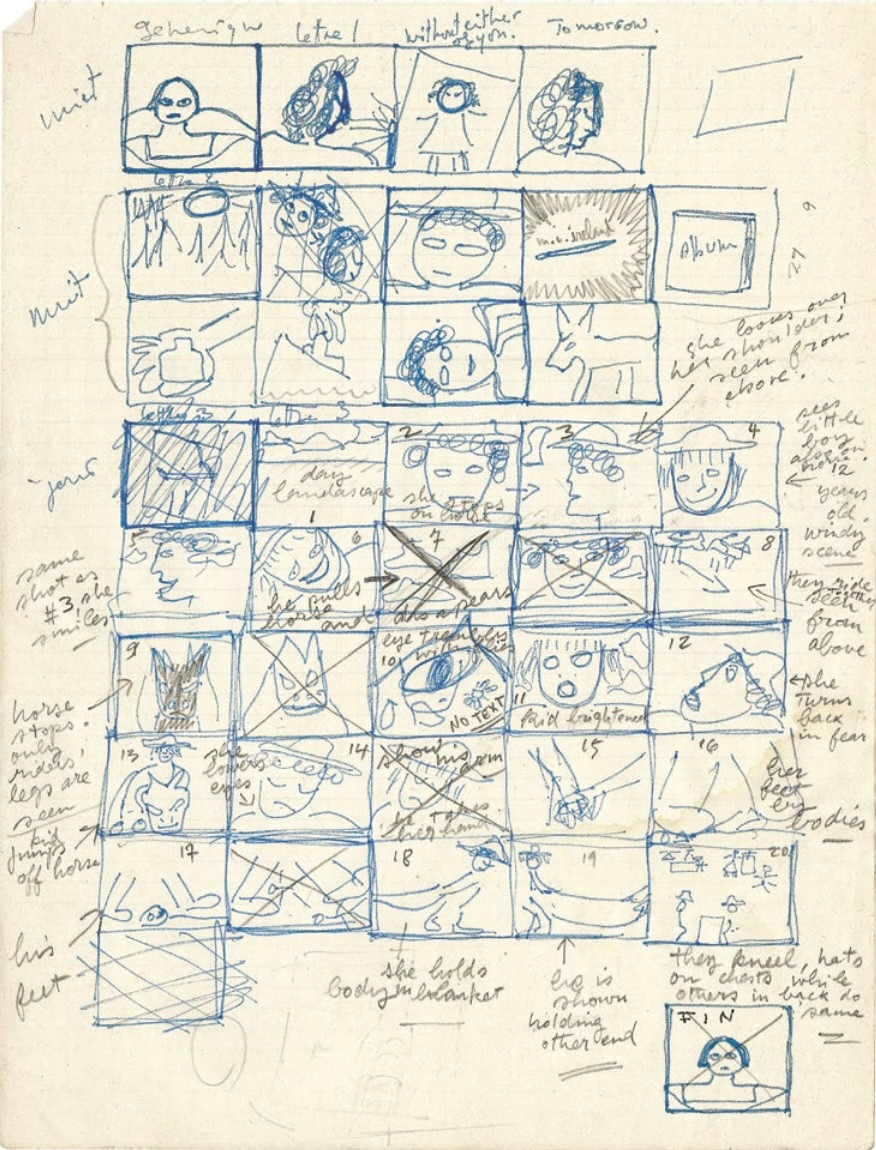 generique
lettre 1
without either
of you.
Tomorrow.
nuit
lettre 2
nuit
m.v. ireland
Album
27
9
she looks over
her shoulder;
seen from
above.
lettre 3
lettre 3
jour
day
landscape
1
2
she stops
on horse
3
4
sees
little
boy
also on
horse 12
years
old.
windy
scene
same
shot as
#3, she
smiles
5
6
he pulls
horse
and
7
disappears
8
they ride
together
seen
from
above
9
horse
stops.
only
riders'
legs are
seen
eye trembles
with flies
10
NO TEXT
11
Kid brightened
12
she
turns
back
in fear
13
kid
jumps
off horse
she
lowers
eyes
14
show his
arm
he takes
her hand
15
16
her
feet
by
bodies
17
his
feet
18
she holds
body in blanket
19
he is
shown
holding
other end
20
they kneel, hats
on chests while
others in back do
same
FIN